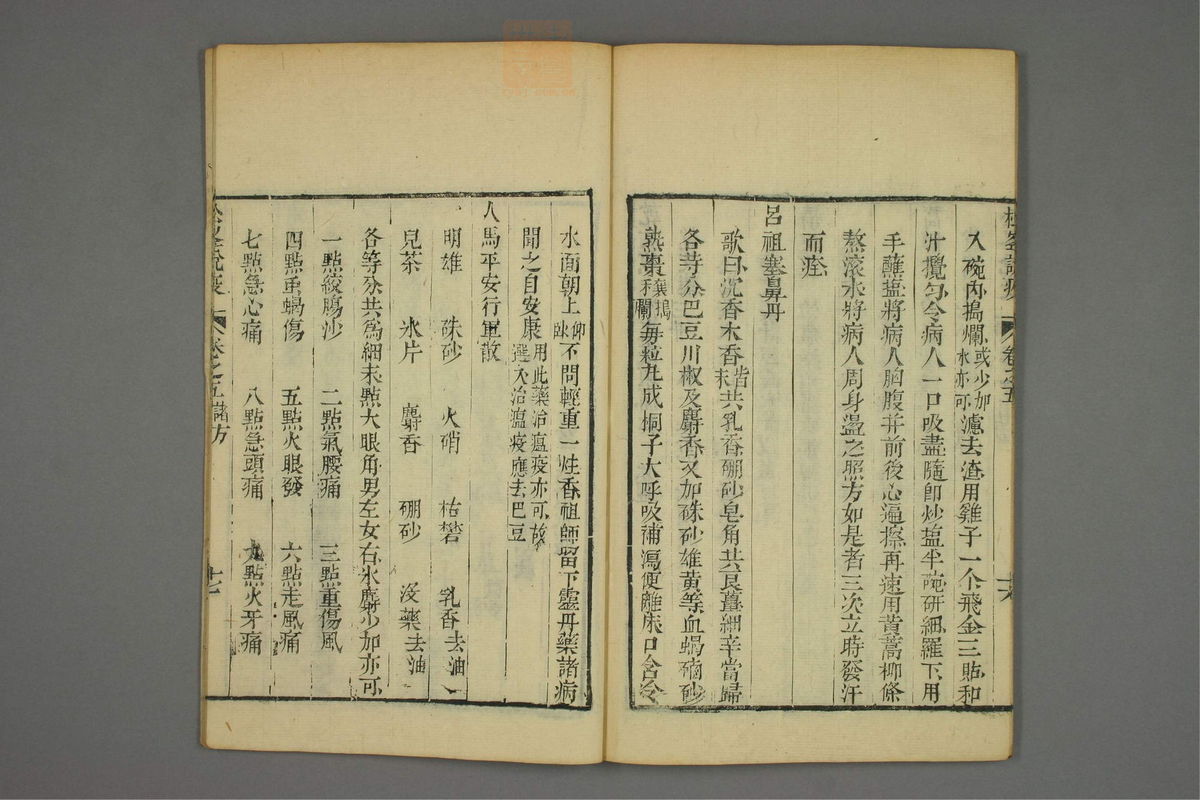 入碗內搗爛或少加水亦可濾去渣用雞子一个飛金三貼和
汁攪勻令病人一口吸盡隨卽炒塩半碗研細羅下用
手蘸塩將病人胸腹并前後心遍擦再速用黃蒿柳條
熬滾水將病人周身盪之照方如是者三次立時發汗
而痊
呂祖塞鼻丹
歌曰沉香木香皆末共乳香硼砂皂角共良薑細辛當歸
各等分巴豆川椒及麝香又加硃砂雄黃等血蝎硇砂
熟棗穰搗和爛每粒丸成桐子大呼吸補瀉便離床口含冷
水面朝上仰臥不問輕重一炷香祖師留下靈丹藥諸病
聞之自安康用此藥治瘟疫亦可故選入治瘟疫應去巴豆
人馬平安行軍散
明雄 硃砂 火硝 枯礬 乳香去油
兒茶 氷片 麝香 硼砂 沒藥去油
各等分共爲細末點大眼角男左女右氷麝少加亦可
一點絞腸沙 二點氣腰痛 三點重傷風
四點虫蝎傷 五點火眼發 六點走風痛
七點急心痛 八點急頭痛 九點火牙痛
松峯說疫 卷之五 諸方